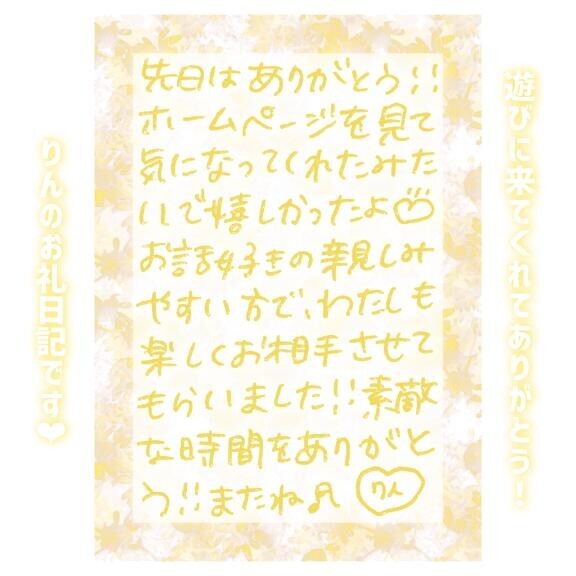 遊びに来てくれてありがとう！
先日はありがとう!!
ホームページを見て
気になってくれたみた
いで嬉しかったよ♡
お話好きの親しみ
やすい方で、わたしも
楽しくお相手させて
もらいました!!素敵
な時間をありがと
う!!またね♪ りん
りんのお礼日記です❤